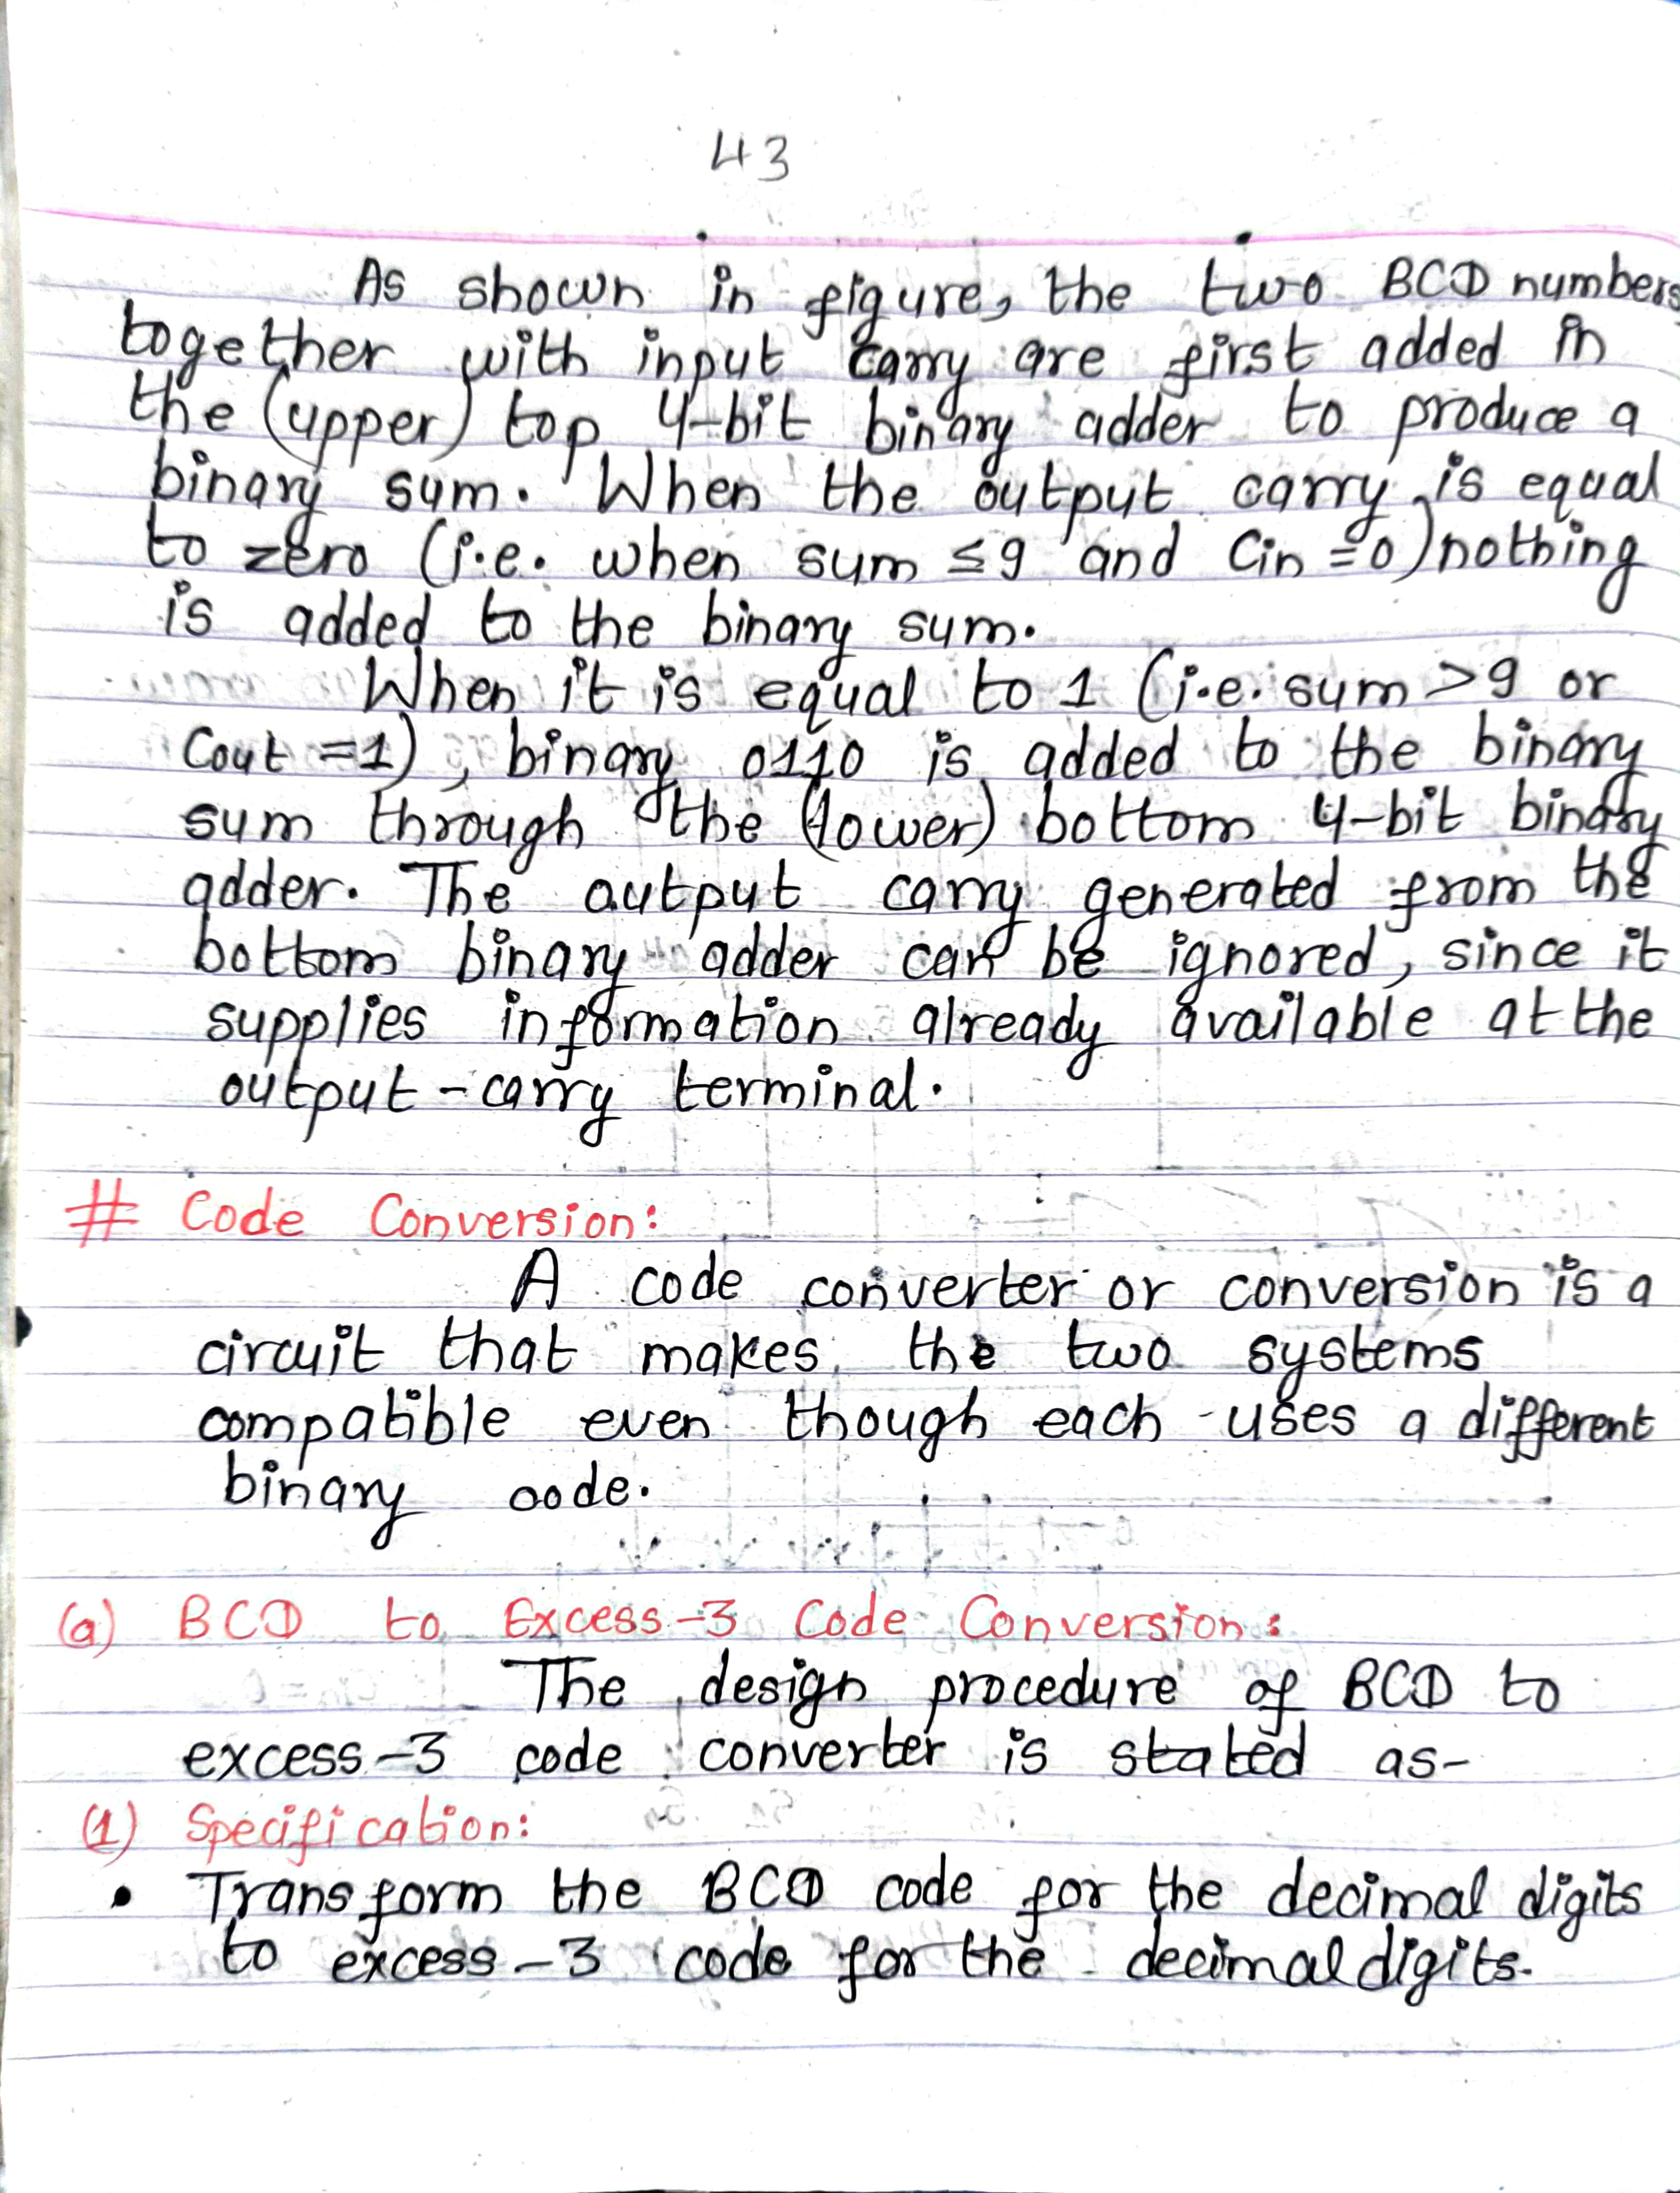 43
As shown in figure, the two BCD numbers
together with input carry are first added in
the (upper) top 4-bit binary adder to produce a
binary sum. When the output carry is equal
to zero (i.e. when sum ≤9 and Cin =0) nothing
is added to the binary sum.
When it is equal to 1 (i.e. sum >9 or
Cout =1), binary 0110 is added to the binary
sum through the (lower) bottom 4-bit binary
adder. The output carry generated from the
bottom binary adder can be ignored, since it
supplies information already available at the
output-carry terminal.
# Code Conversion:
A code converter or conversion is a
circuit that makes the two systems
compatible even though each uses a different
binary code.
(a) BCD to Excess-3 Code Conversion:
The design procedure of BCD to
excess-3 code converter is stated as-
(1) Specification:
• Transform the BCD code for the decimal digits
to excess-3 code for the decimal digits.